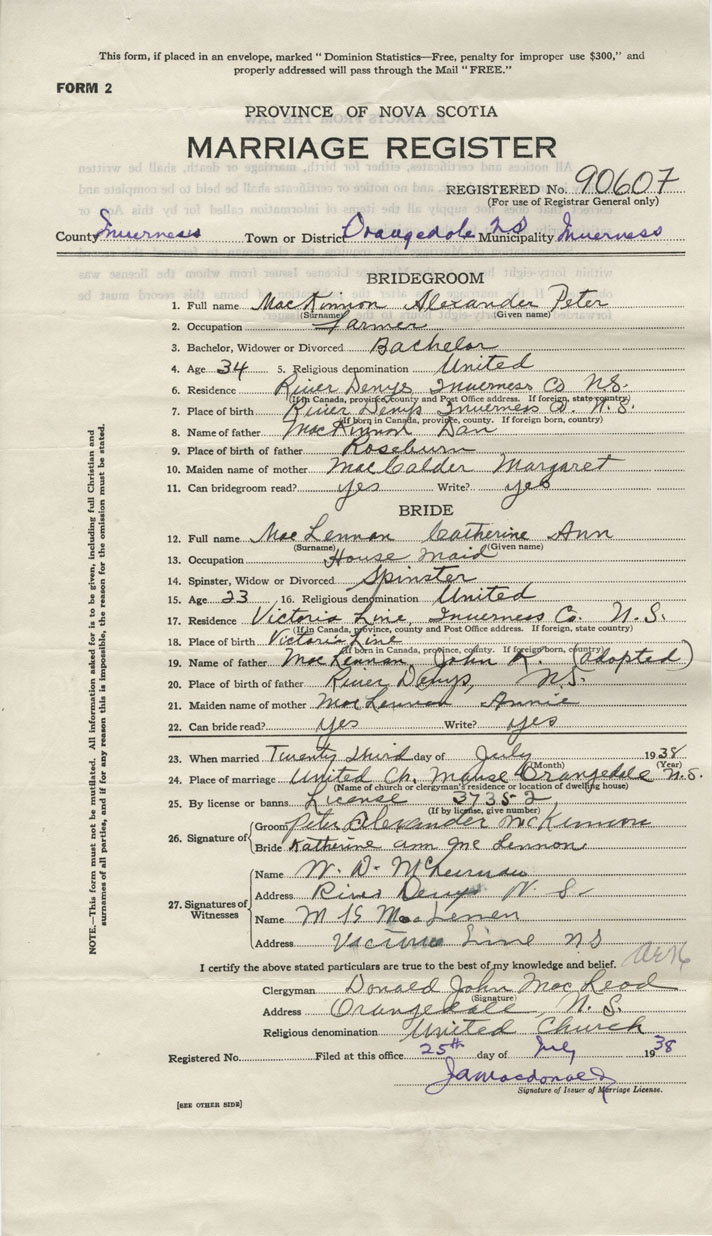 This form, if placed in an envelope, marked "Dominion Statistics—Free, penalty for improper use $300," and
properly addressed will pass through the Mail "FREE."
FORM 2
PROVINCE OF NOVA SCOTIA
MARRIAGE REGISTER
REGISTERED No. 90607
(For use of Registrar General only)
County Inverness Town or District Orangedale NS Municipality Inverness
BRIDEGROOM
1. Full name MacKinnon Alexander Peter
(Surname) (Given name)
2. Occupation Farmer
3. Bachelor, Widower or Divorced Bachelor
4. Age 34 5. Religious denomination United
6. Residence River Denys Inverness Co NS.
(If in Canada, province, county and Post Office address. If foreign, state country)
7. Place of birth River Denys Inverness Co. N.S.
(If born in Canada, province, county. If foreign born, country)
8. Name of father MacKinnon Dan
9. Place of birth of father Roseburn
10. Maiden name of mother MacCalder Margaret
11. Can bridegroom read? yes Write? yes
BRIDE
12. Full name MacLennan Catherine Ann
(Surname) (Given name)
13. Occupation House maid
14. Spinster, Widow or Divorced Spinster
15. Age 23 16. Religious denomination United
17. Residence Victoria Line, Inverness Co. N.S.
(If in Canada, province, county and Post Office address. If foreign, state country)
18. Place of birth Victoria Line
(If born in Canada, province, county. If foreign born, country)
19. Name of father MacLennan, John A. (adopted)
20. Place of birth of father River Denys, N.S.
21. Maiden name of mother MacLennan Annie
22. Can bride read? yes Write? yes
23. When married Twenty third day of July 1938
(Month) (Year)
24. Place of marriage United Ch. Manse Orangedale N.S.
(Name of church or clergyman's residence or location of dwelling house)
25. By license or banns License 3735-2
(If by license, give number)
26. Signature of
Groom Peter Alexander McKinnon
Bride Katherine ann Mc Lennon
27. Signatures of Witnesses
Name W. D.
Address River Denys N.S.
Name M
Address Victoria Line NS
I certify the above stated particulars are true to the best of my knowledge and belief.
Clergyman Donald John MacLeod
(Signature)
Address Orangedale, N.S.
Religious denomination United Church
Registered No. Filed at this office 25th day of July 1938
JAMacdonald
Signature of Issuer of Marriage License.
[SEE OTHER SIDE]
NOTE.—This form must not be mutilated. All information asked for is to be given, including full Christian and
surnames of all parties, and if for any reason this is impossible, the reason for the omission must be stated.